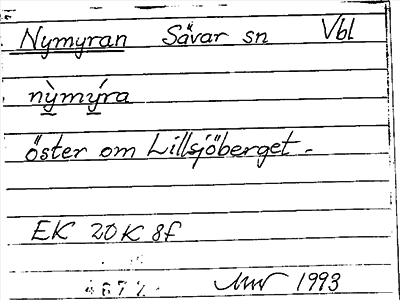 Nymyran Sävar sn Vbl
nỳmýra
öster om Lillsjöberget -
EK 20K 8f
1993